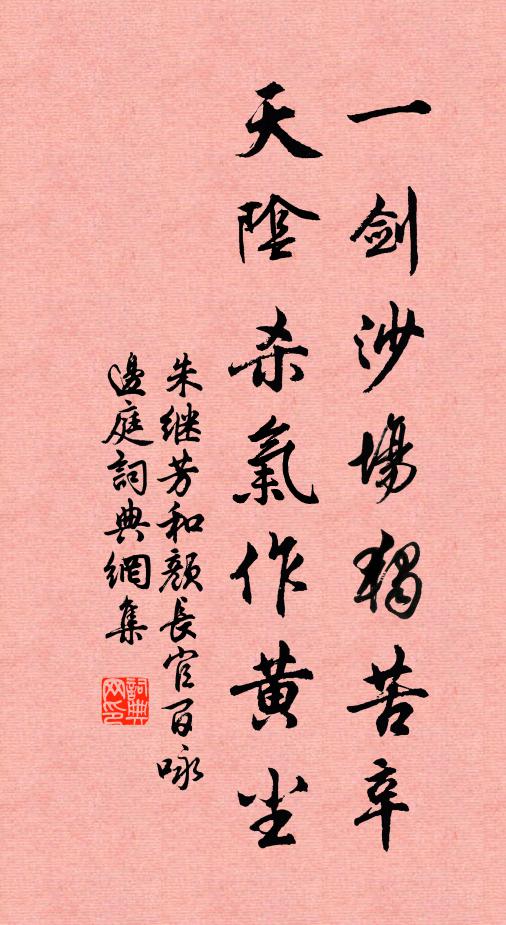 一劍沙場獨苦辛
天陰杀氣作黃尘
朱继芳和顏長官百咏
邊庭詞典網集
詞典网印